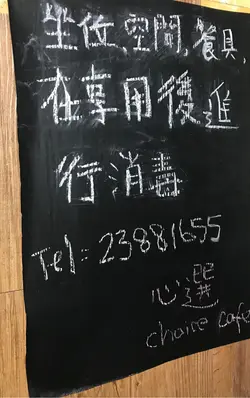 坐位,空間,餐具,
在享用後進
行消毒
Tel=23881655
心選
choice cafe